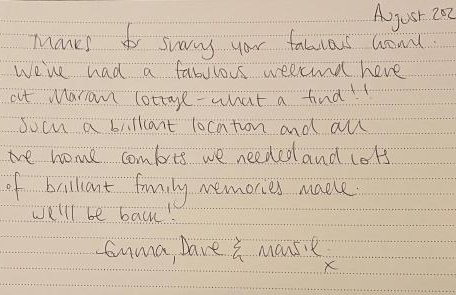 August 202
Thanks for sharing your fabulous home.
We've had a fabulous weekend here
at Marian Cottage - what a find!!
Such a brilliant location and all
the home comforts we needed and lots
of brilliant family memories made.
We'll be back!
Emma, Dave & Maisie.
x